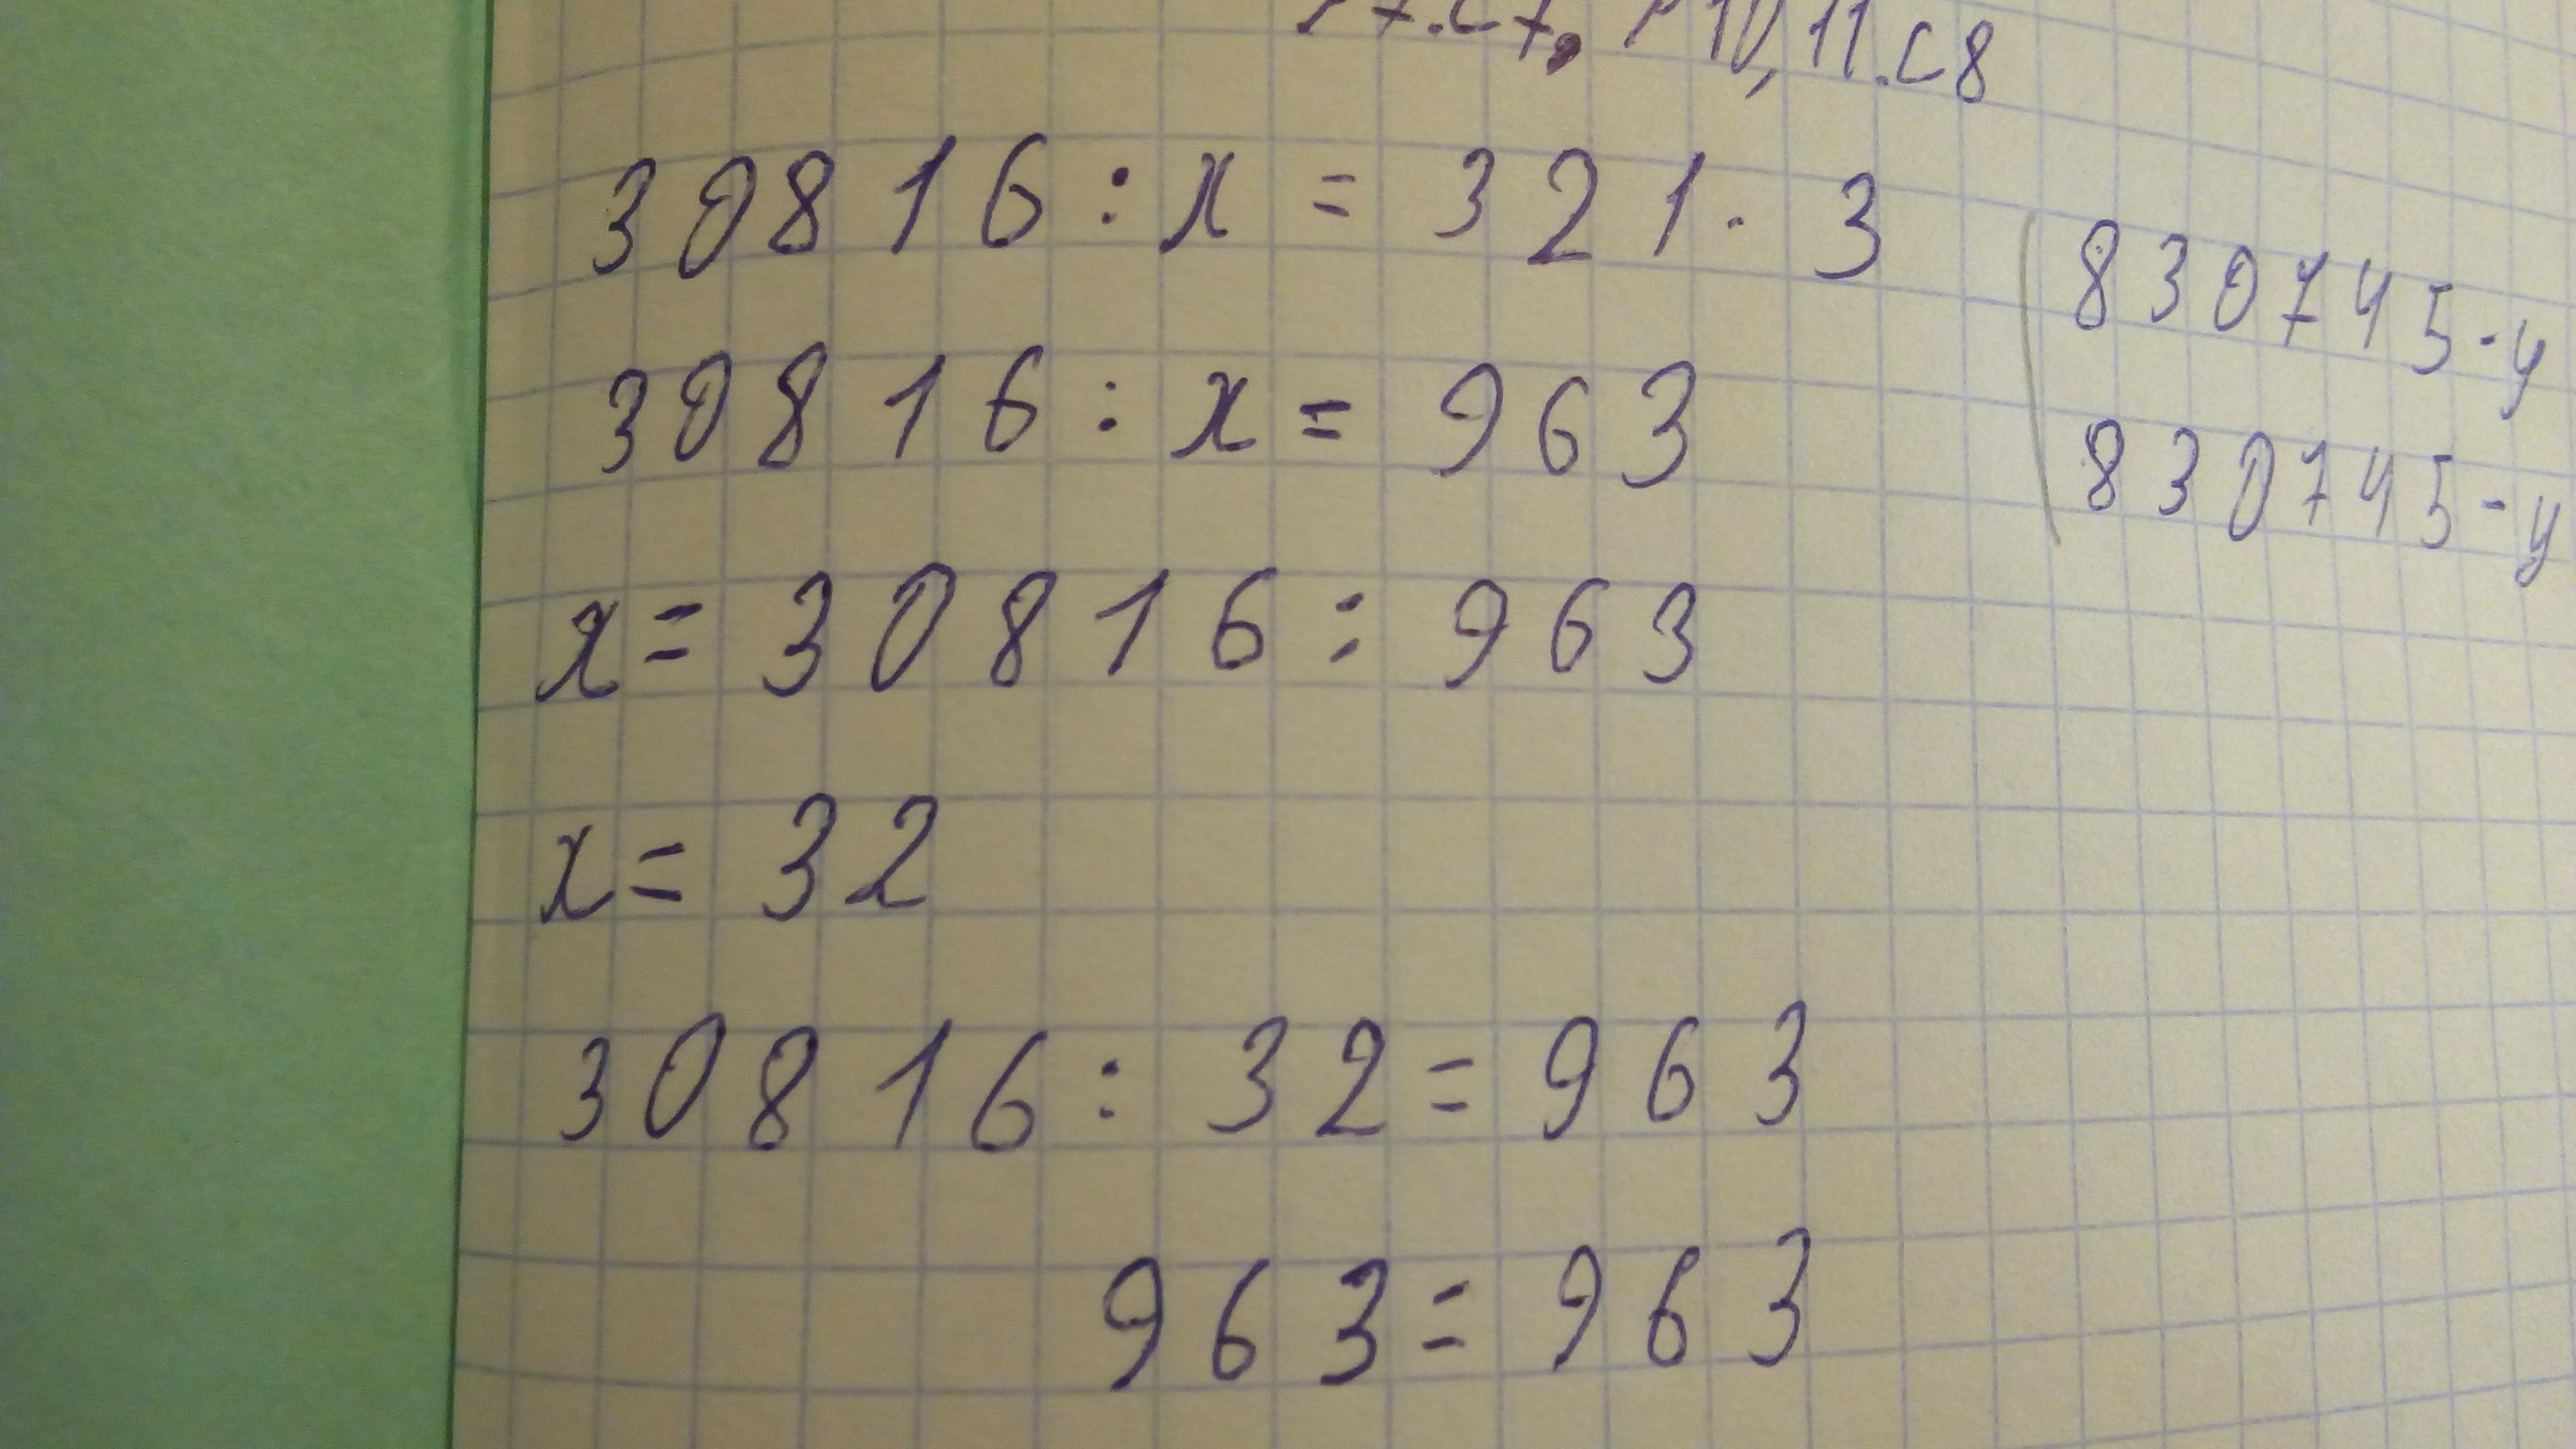 11.с8
30816:x=321·3
30816:x=963
x=30816:963
x=32
30816:32=963
963=963
830745-у
830745-у